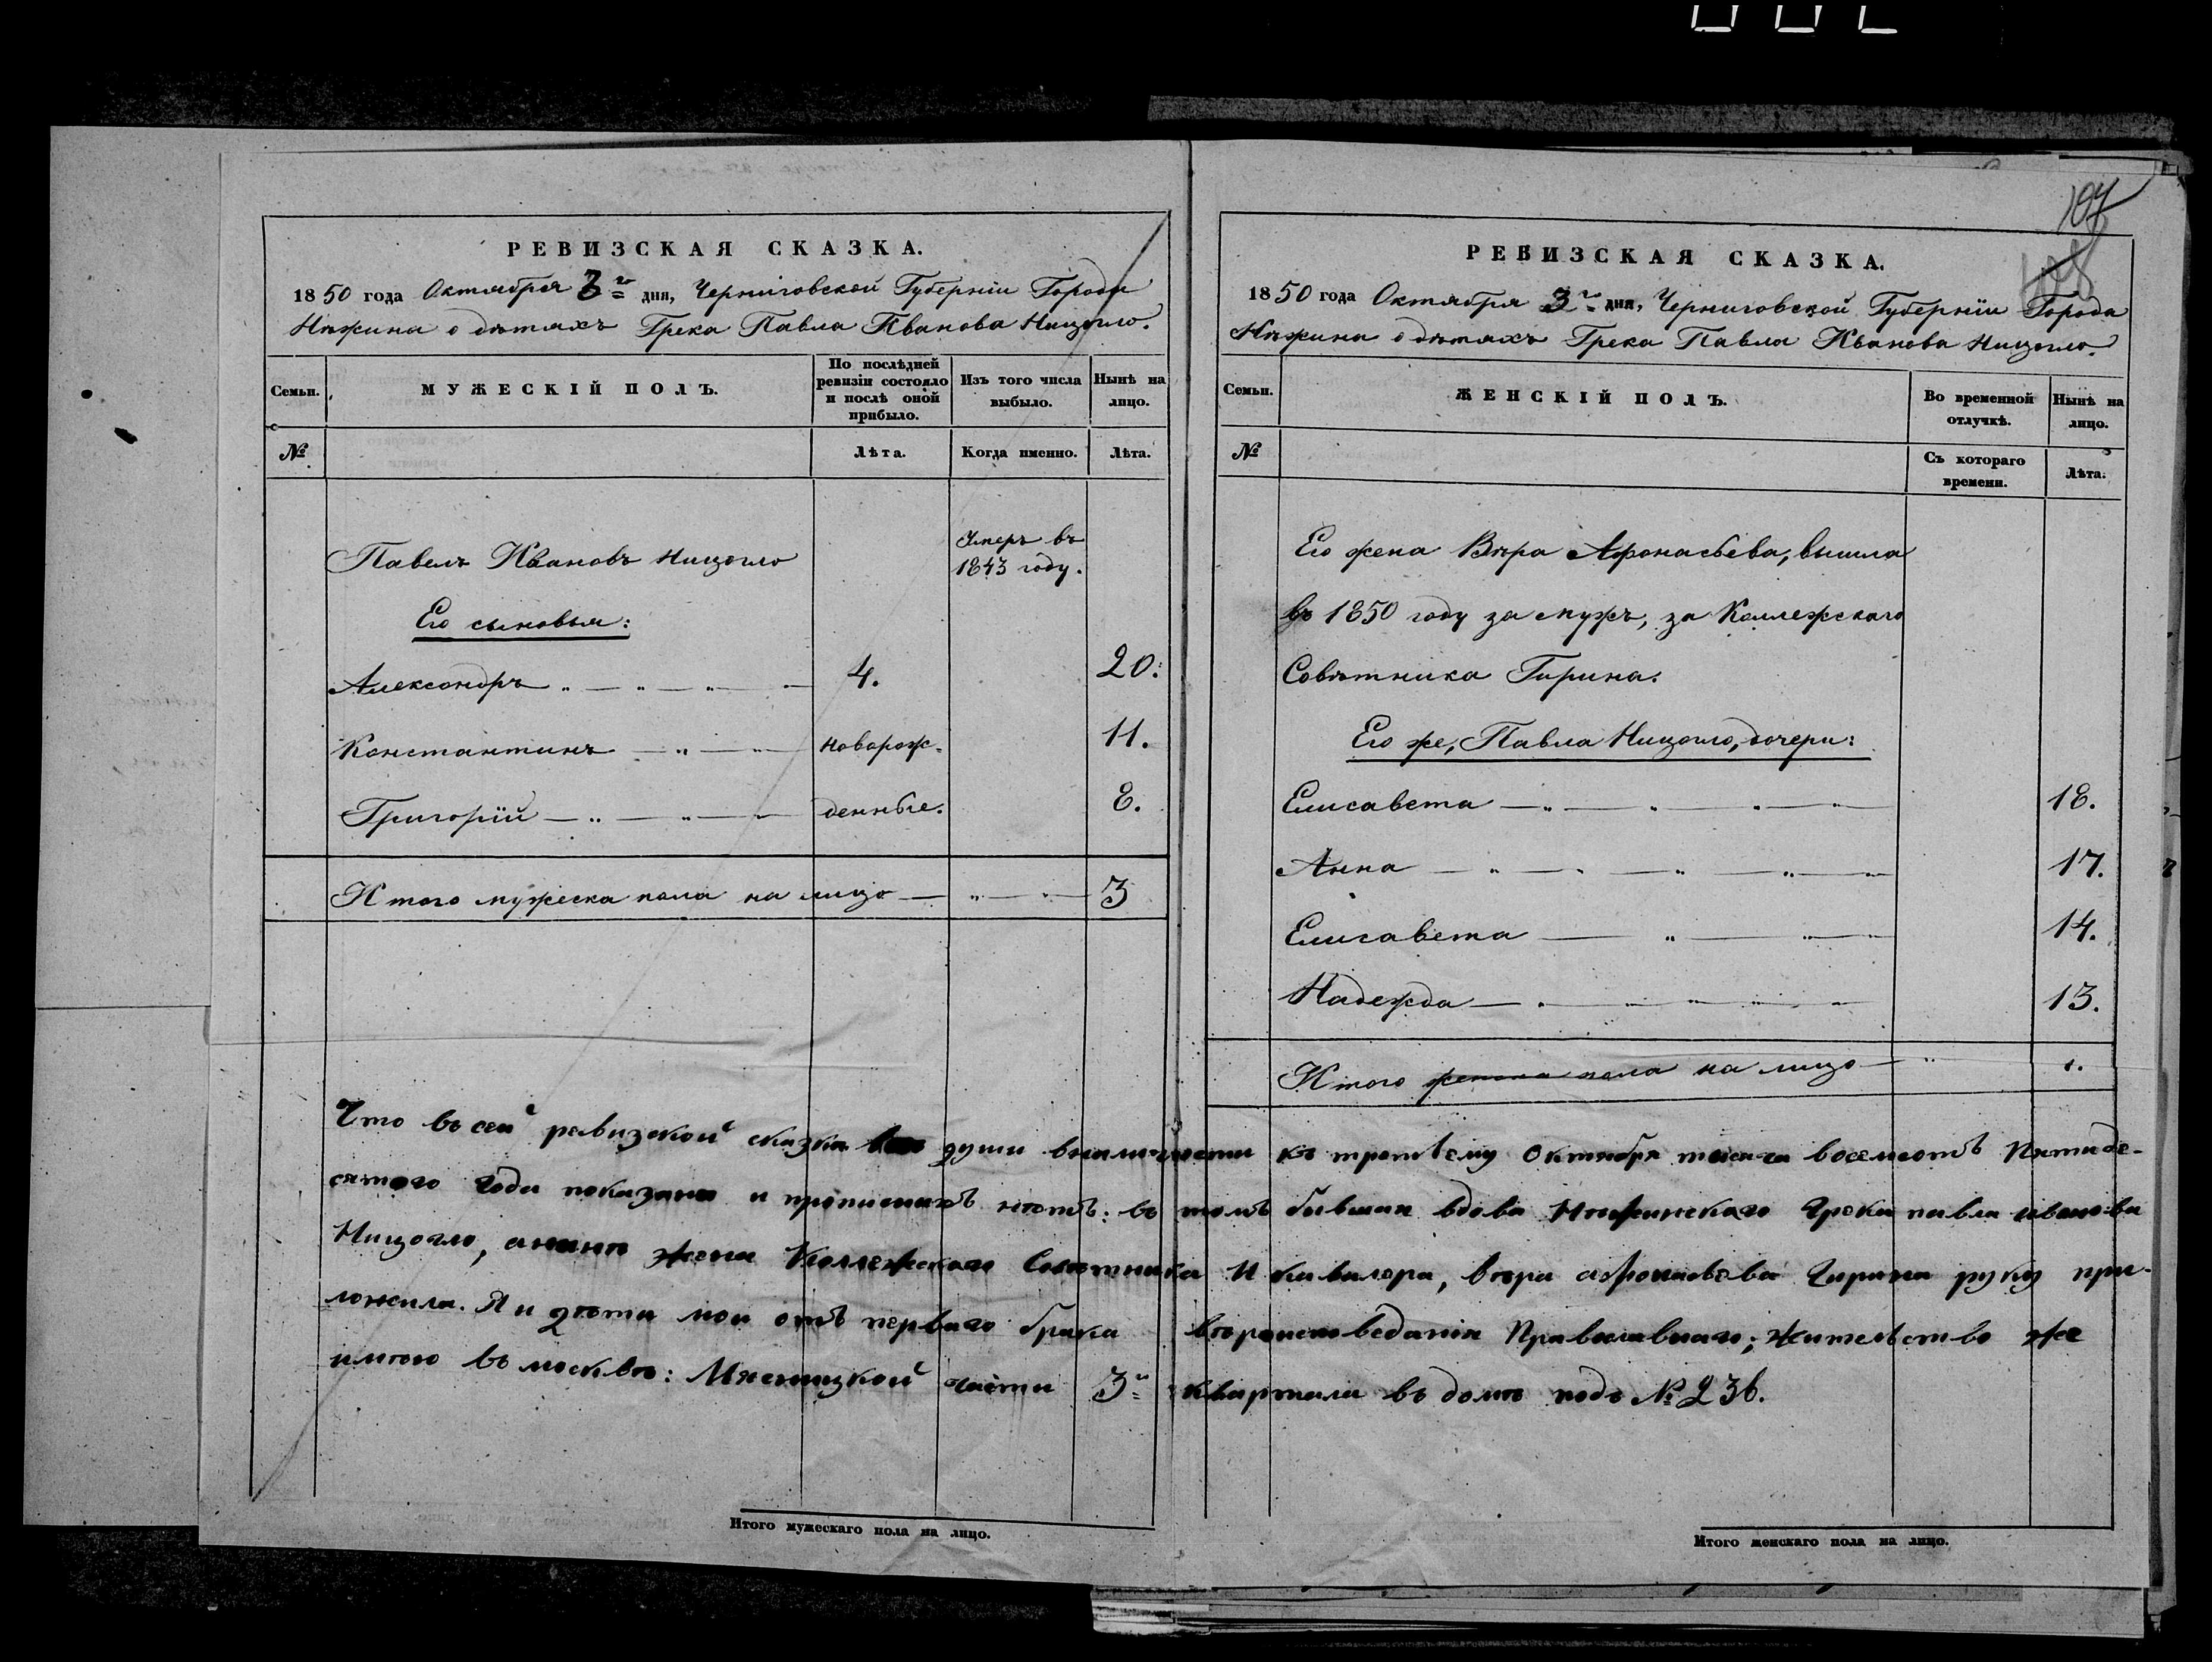 107
108
РЕВИЗСКАЯ СКАЗКА.
1850 года Октября 3го дня, Черниговской Губерніи Города
Нѣжина о дѣтяхъ Грека Павла Иванова Ницогло.
Семьи.
МУЖЕСКІЙ ПОЛЪ.
По послѣдней
ревизіи состояло
и послѣ оной
прибыло.
Изъ того числа
выбыло.
Нынѣ на
лицо.
№
Лѣта.
Когда именно.
Лѣта.
Павелъ Ивановъ Ницогло
Умеръ въ
1843 году.
Его сыновья:
Александръ 4. 20.
Константинъ новорож- 11.
Григорій денные. 8.
Итого мужеска пола на лицо 3
РЕВИЗСКАЯ СКАЗКА.
1850 года Октября 3го дня, Черниговской Губерніи Города
Нѣжина о дѣтяхъ Грека Павла Иванова Ницогло.
Семьи.
ЖЕНСКІЙ ПОЛЪ.
Во временной
отлучкѣ.
Нынѣ на
лицо.
№
Съ котораго
времени.
Лѣта.
Его жена Вѣра Афонасьева, вышла
въ 1850 году за мужъ, за Коллежскаго
Совѣтника Гирина.
Его же, Павла Ницогло, дочери:
Елисавета 18.
Анна 17.
Елисавета 14.
Надежда 13.
Итого женска пола на лицо
Что въ сей ревизской сказкѣ все души въ наличности къ третьему Октября тысяча восемсотъ Пятиде-
сятого года показаны и прописныхъ нѣтъ: въ томъ бывшая вдова Нѣжинскаго Грека павла иванова
Ницогло, а нынѣ жена Коллежскаго Совѣтника И кавалера, вѣра афонасьева Гирина руку при-
ложила. Я и дѣти мои отъ перваго брака вѣроисповеданія Православнаго; жительство же
имѣю въ москвѣ: Мясницкой части 3й квартала въ домѣ подъ № 236.
Итого мужескаго пола на лицо.
Итого женскаго пола на лицо.